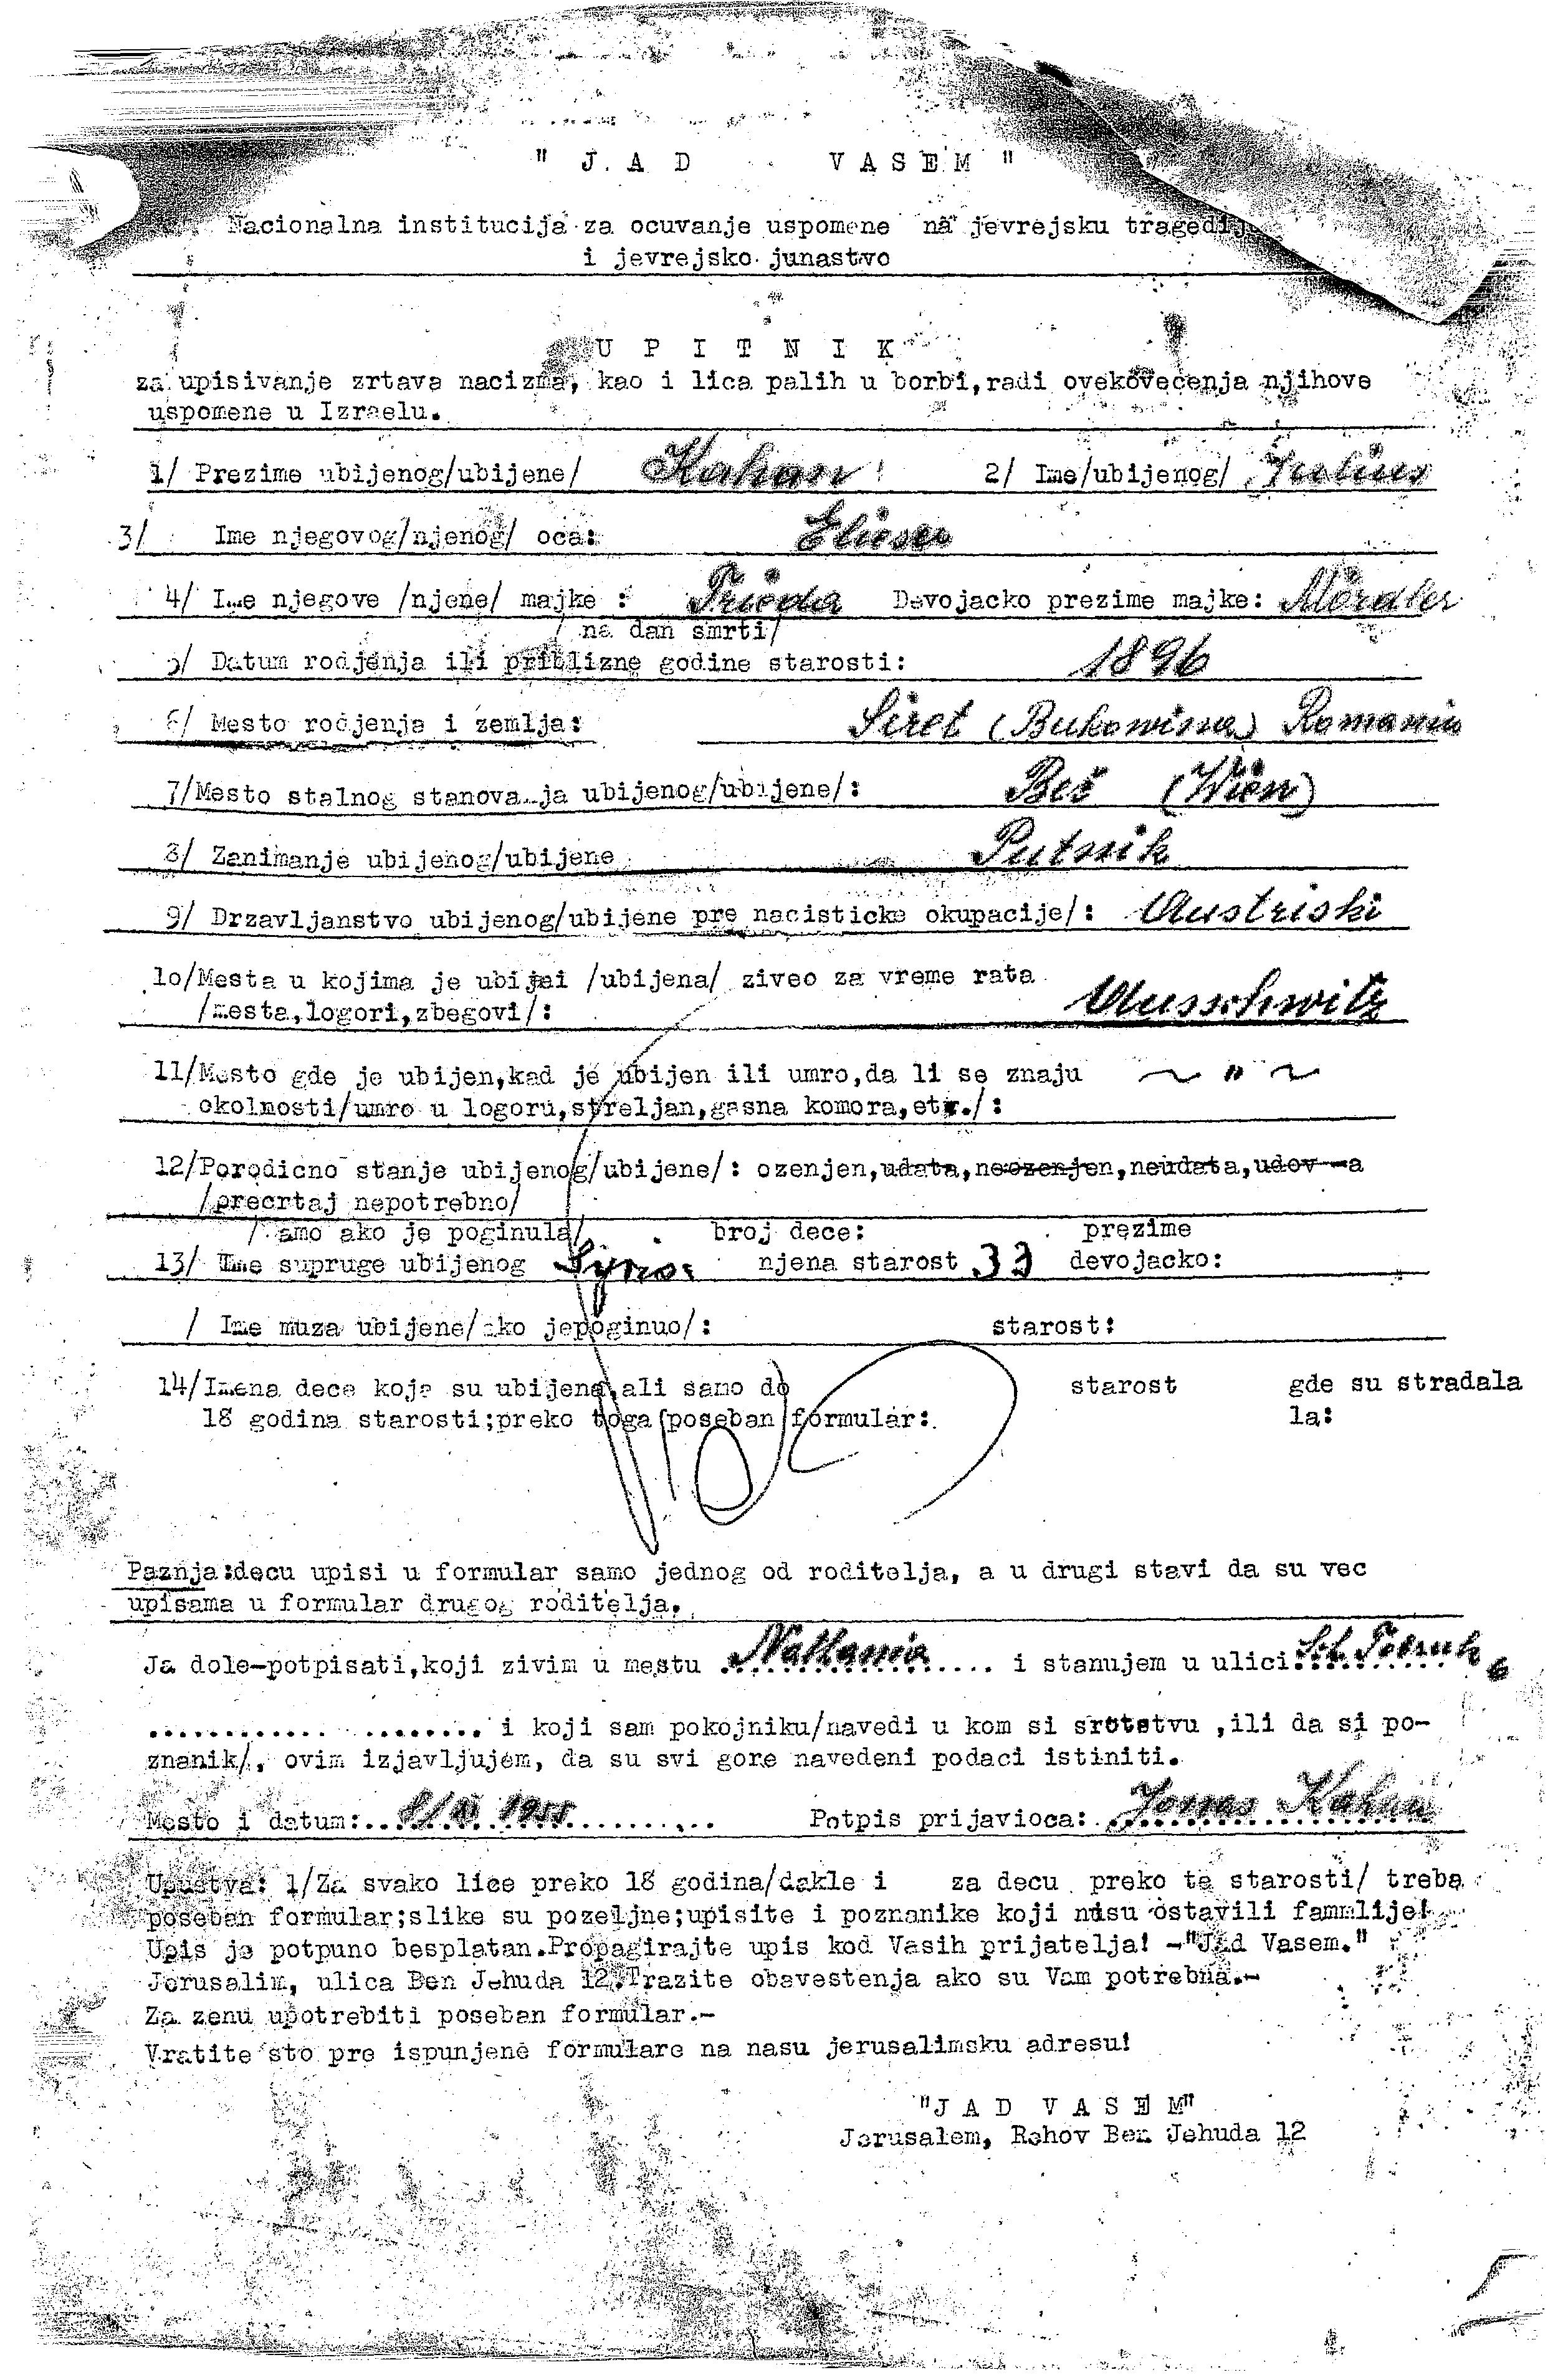 " J A D VASEM "
Nacionalna institucija za ocuvanje uspomene na jevrejsku tragedij
i jevrejsko junastvo
U P I T N I K
za upisivanje zrtava nacizma, kao i lica palih u borbi,radi ovekovecenja njihove
uspomene u Izraelu.
1/ Prezime ubijenog/ubijene/ Kahan 2/ Ime/ubijenog/ Julius
3/ Ime njegovog/njenog/ oca: Elieser
4/ Ime njegove /njene/ majke : Frieda Devojacko prezime majke: Mördler
/na dan smrti/
5/ Datum rodjenja ili priblizne godine starosti: 1896
6/ Mesto rodjenja i zemlja: Siret (Bukowina) Romania
7/Mesto stalnog stanovanja ubijenog/ubijene/: Beč (Wien)
8/ Zanimanje ubijenog/ubijene Putnik
9/ Drzavljanstvo ubijenog/ubijene pre nacisticke okupacije/: Austriski
10/Mesta u kojima je ubijei /ubijena/ ziveo za vreme rata
/mesta,logori,zbegovi/: Ausschwitz
11/Mesto gde je ubijen,kad je ubijen ili umro,da li se znaju ~ " ~
okolnosti/umro u logoru,streljan,gasna komora,etc./:
12/Porodicno stanje ubijenog/ubijene/: ozenjen,udata,neozenjen,neudata,udov-a
/precrtaj nepotrebno/
/samo ako je poginula/ broj dece: prezime
13/ Ime supruge ubijenog njena starost 33 devojacko:
/ Ime muza ubijene/ako jepoginuo/: starost:
14/Imena dece koja su ubijena,ali samo do starost gde su stradala
18 godina starosti;preko toga/poseban formular: la:
Paznja:decu upisi u formular samo jednog od roditelja, a u drugi stavi da su vec
upisama u formular drugog roditelja.
Ja dole-potpisati,koji zivim u mestu Nathania i stanujem u ulici: 6
.................... i koji sam pokojniku/navedi u kom si srotstvu ,ili da si po-
znanik/, ovim izjavljujem, da su svi gore navedeni podaci istiniti.
Mesto i datum: 1955 Potpis prijavioca: Jonas Kahan
Upustva: 1/Za svako lice preko 18 godina/dakle i za decu preko te starosti/ treba
poseban formular;slike su pozeljne;upisite i poznanike koji nisu ostavili familije!
Upis je potpuno besplatan.Propagirajte upis kod Vasih prijatelja! -"Jad Vasem."
Jerusalim, ulica Ben Jehuda 12.Trazite obavestenja ako su Vam potrebna.-
Za zenu upotrebiti poseban formular.-
Vratite sto pre ispunjene formulare na nasu jerusalimsku adresu!
"J A D V A S E M"
Jerusalem, Rehov Ben Jehuda 12